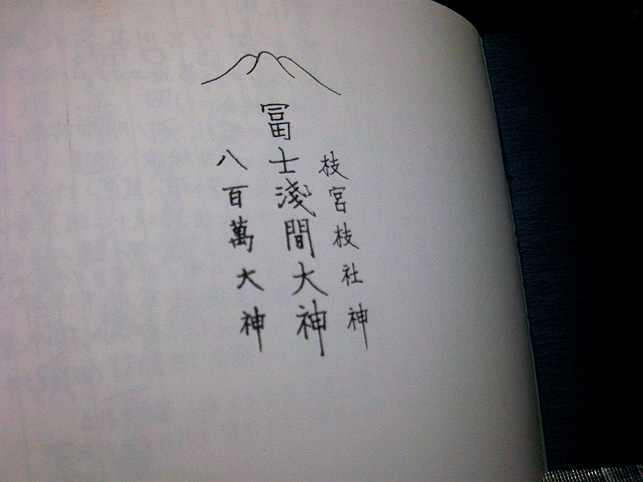 枝宮枝社神
冨士淺間大神
八百萬大神